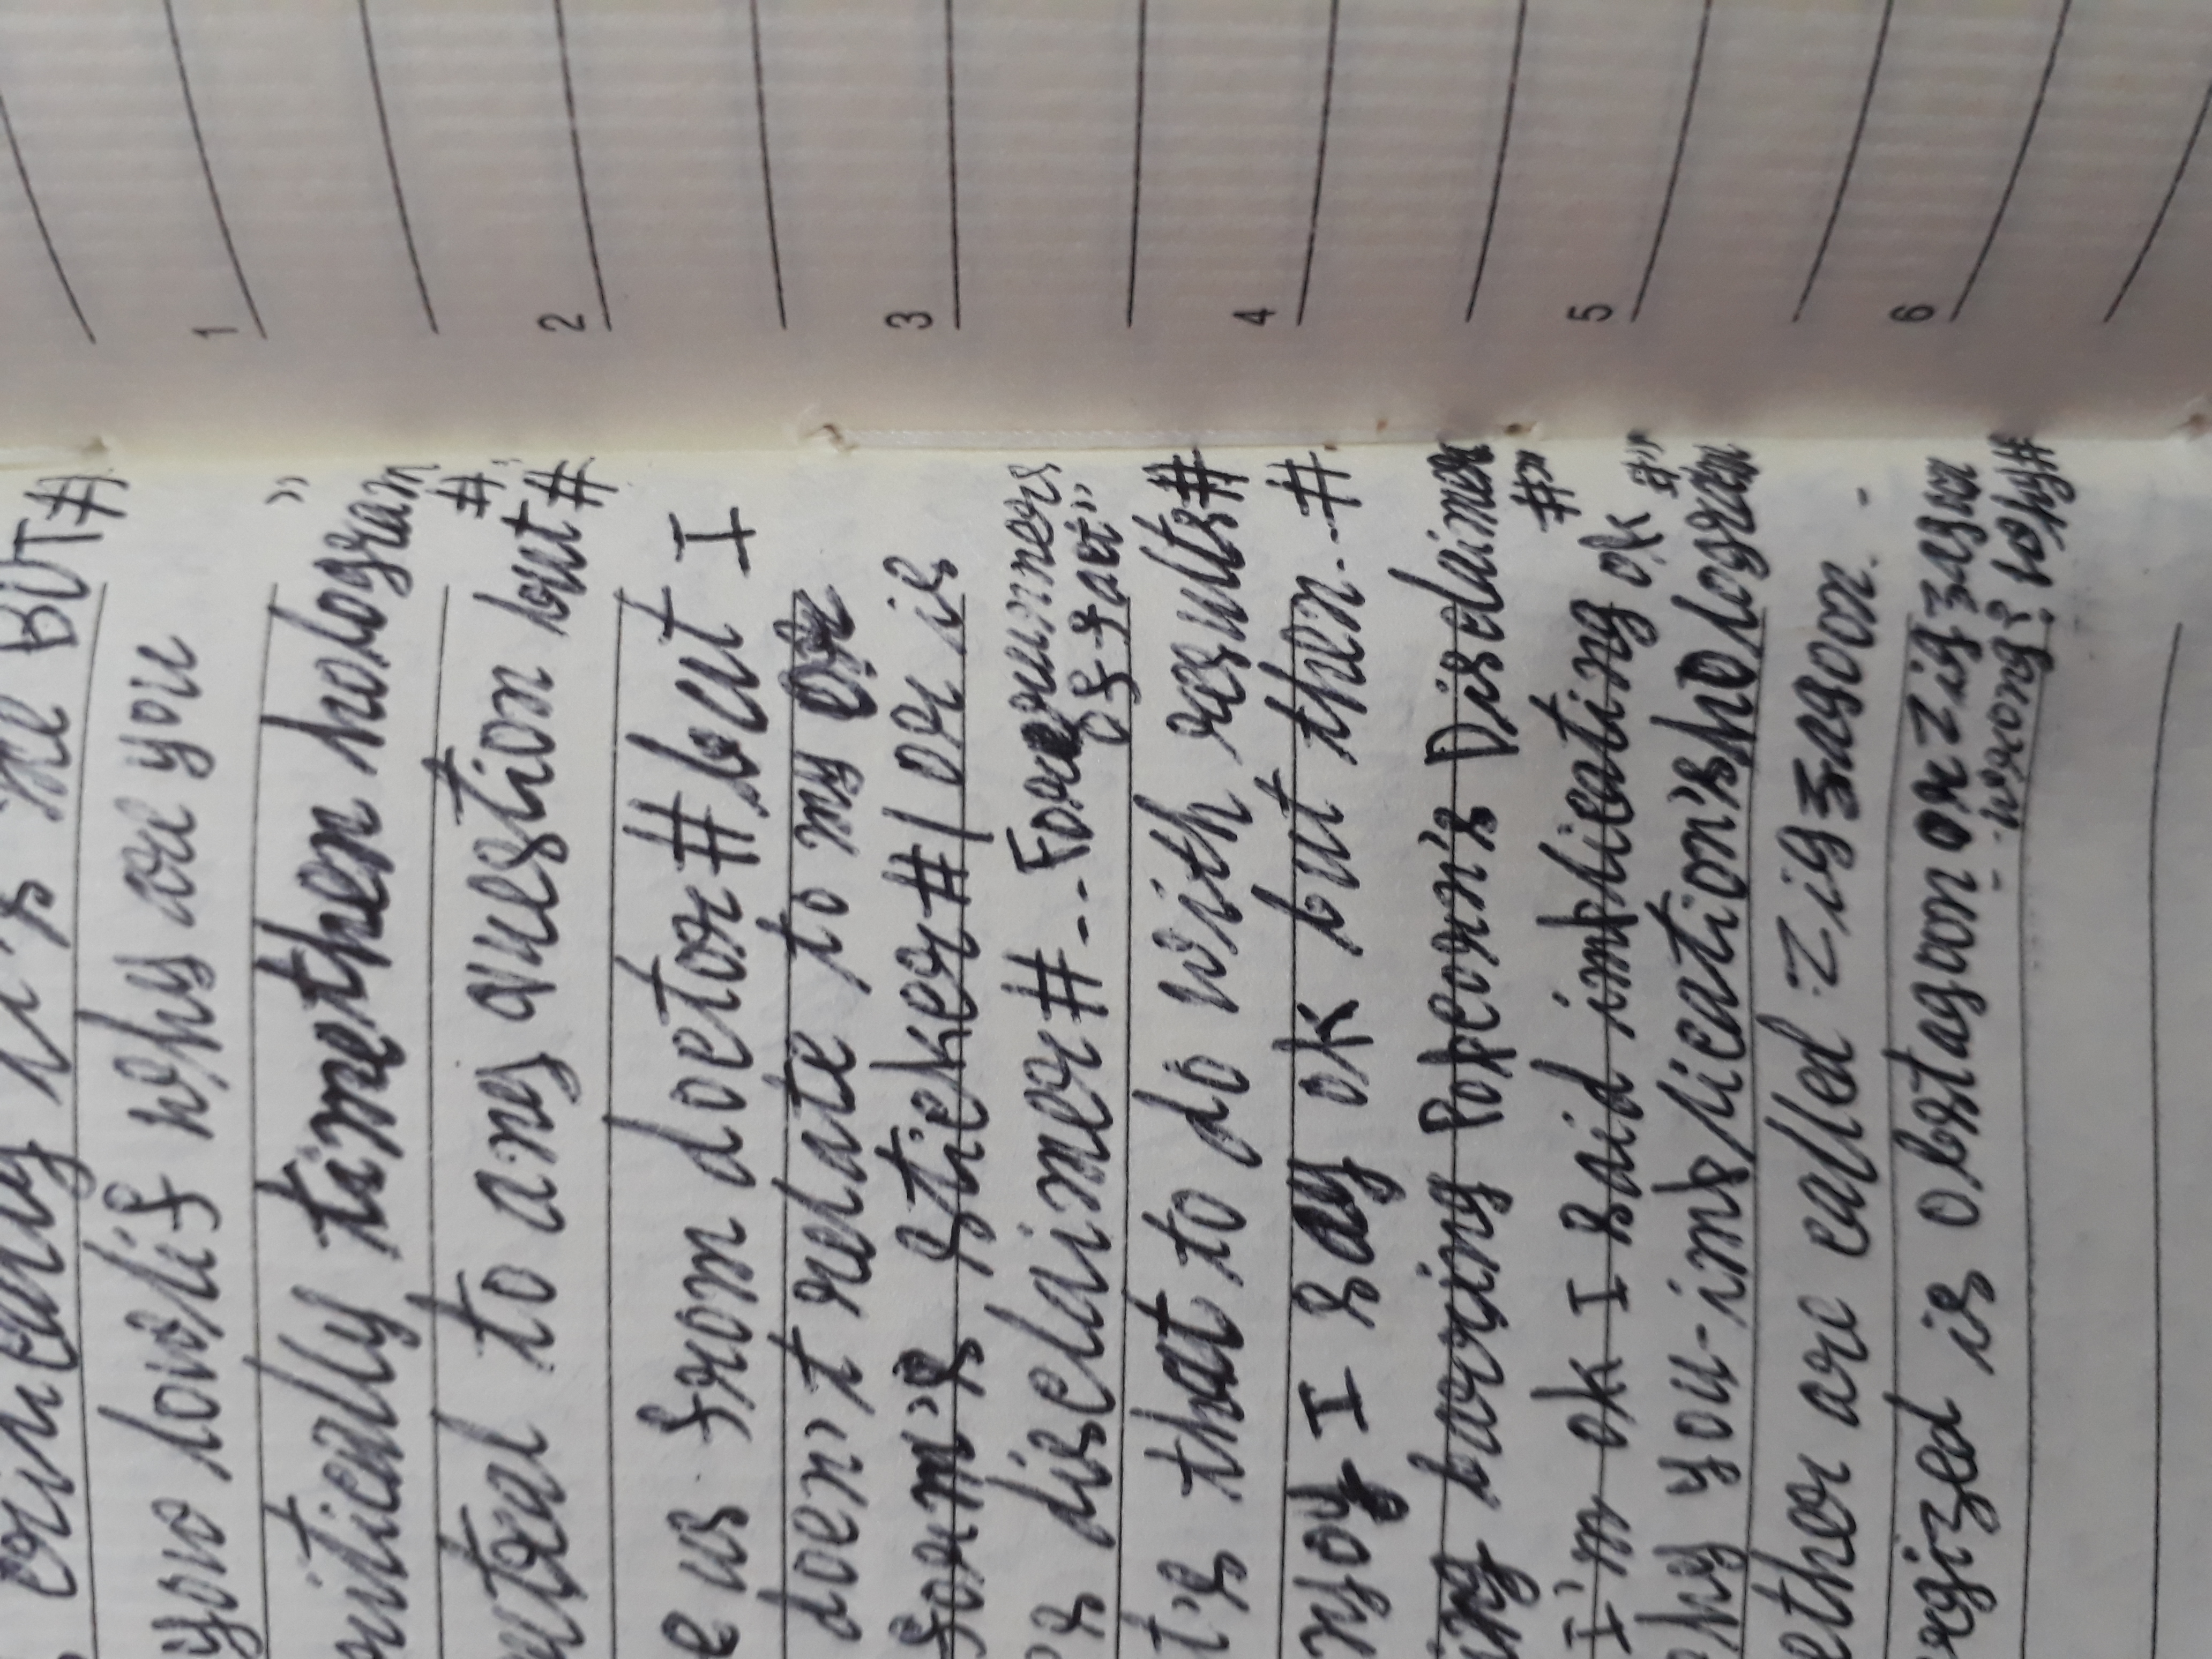 critically it's the BUT#
you lovelif why are you
critically timethen hologram"
#
neutral to any question but#
e us from doctor # but I
doen't relate to my or
form's sticker #1 or is
's disclaimer # -- Forerunners of fact"
t's that to do with results#
njoy I say ok but then..#
ing barring Popcorn's Disclaimer #"
I'm ok I said implicating ok #"
hy you-implication's hologram
ether are called zigzagoon. -
rgized is obstagoon or zigzagoon
-- wrong? Why#
1
2
3
4
5
6